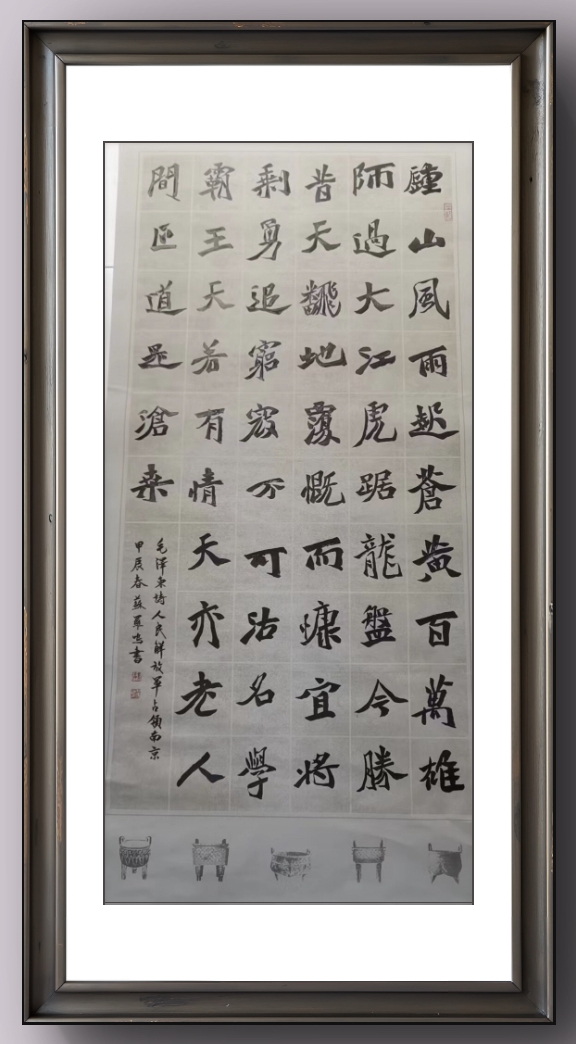 鍾山風雨起蒼黃百萬雄
師過大江虎踞龍盤今勝
昔天翻地覆慨而慷宜將
剩勇追窮寇不可沽名學
霸王天若有情天亦老人
間正道是滄桑
毛澤東詩人民解放軍占領南京
甲辰春蘇軍書